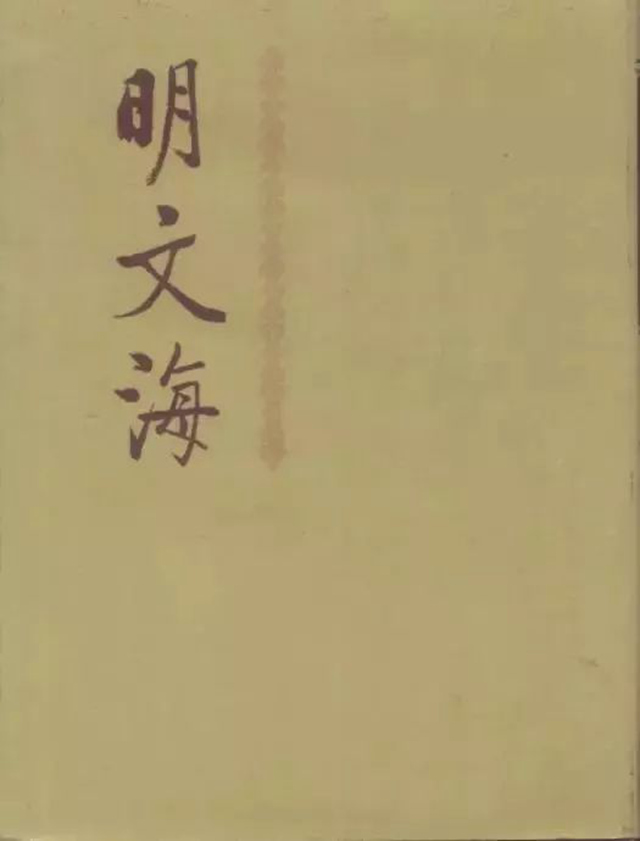 明文海